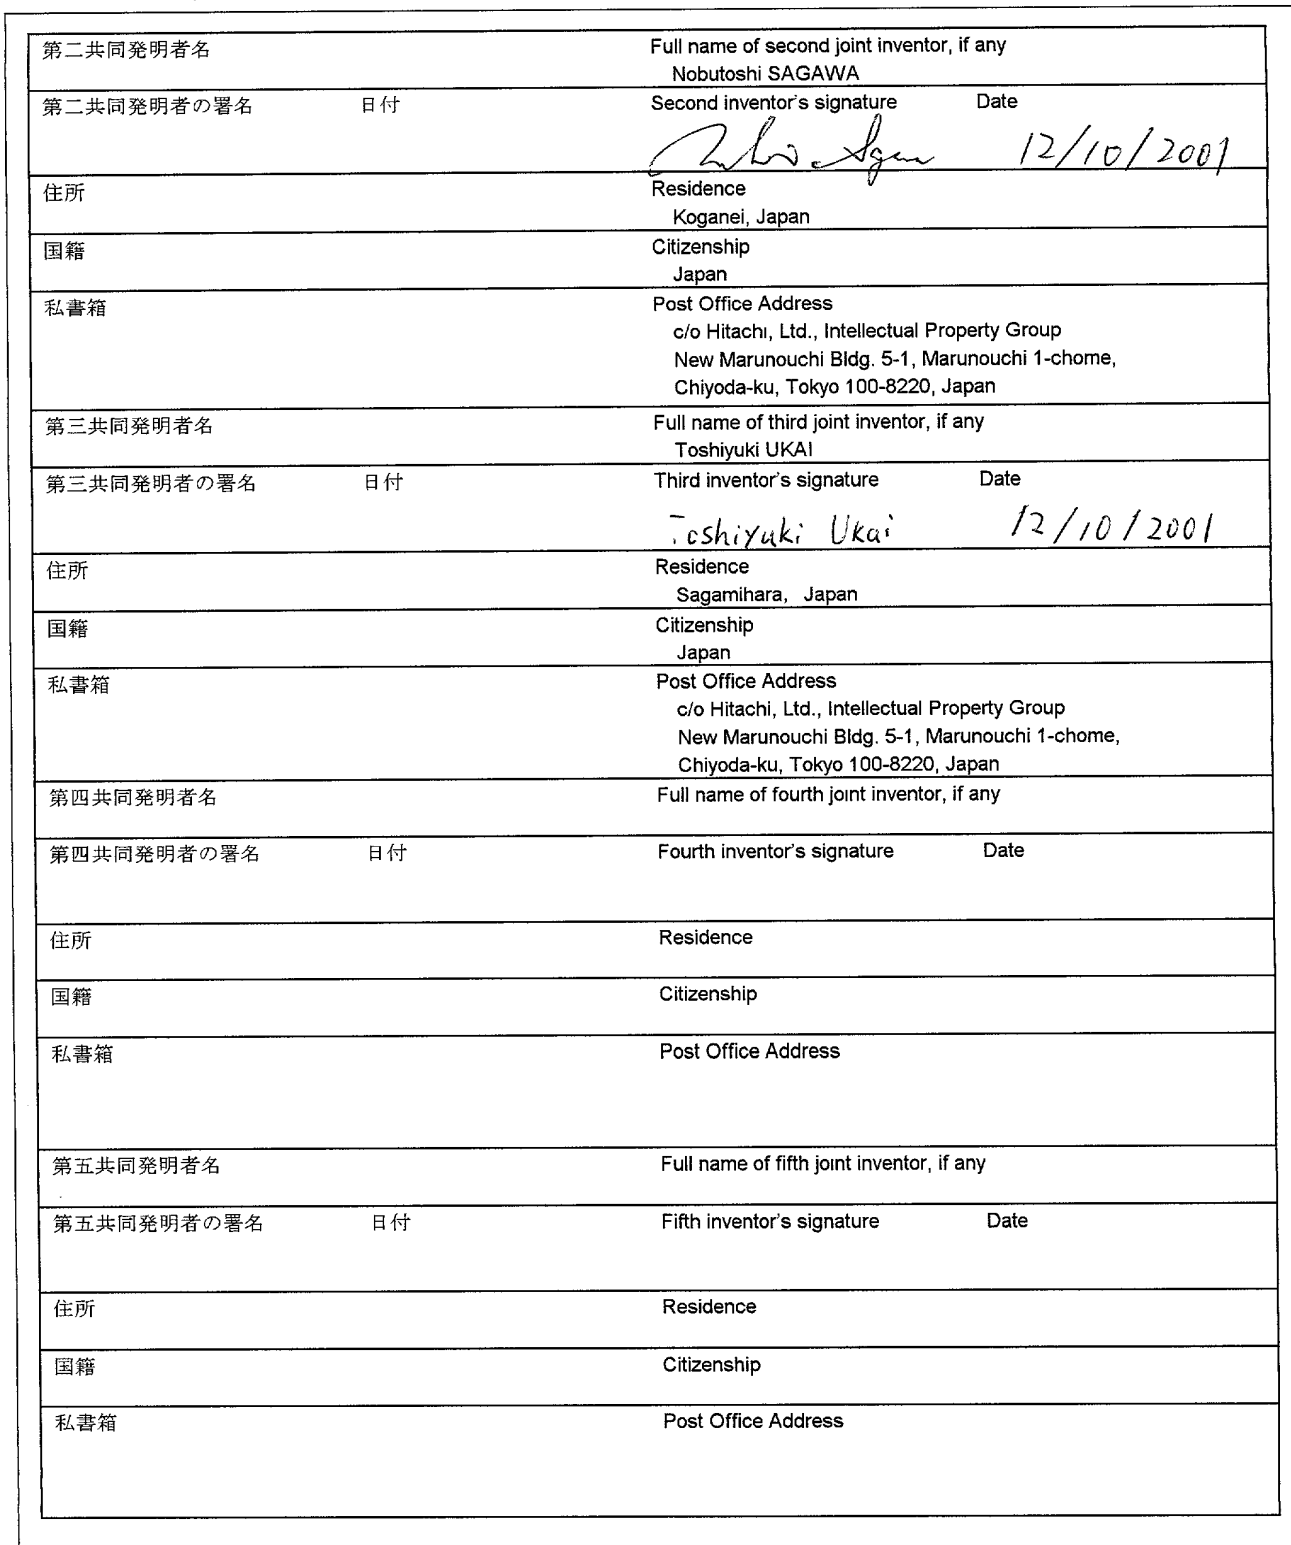 第二共同発明者名 Full name of second joint inventor, if any
Nobutoshi SAGAWA
第二共同発明者の署名 日付 Second inventor's signature Date
12/10/2001
住所 Residence
Koganei, Japan
国籍 Citizenship
Japan
私書箱 Post Office Address
c/o Hitachi, Ltd., Intellectual Property Group
New Marunouchi Bldg. 5-1, Marunouchi 1-chome,
Chiyoda-ku, Tokyo 100-8220, Japan
第三共同発明者名 Full name of third joint inventor, if any
Toshiyuki UKAI
第三共同発明者の署名 日付 Third inventor's signature Date
Toshiyuki Ukai 12/10/2001
住所 Residence
Sagamihara, Japan
国籍 Citizenship
Japan
私書箱 Post Office Address
c/o Hitachi, Ltd., Intellectual Property Group
New Marunouchi Bldg. 5-1, Marunouchi 1-chome,
Chiyoda-ku, Tokyo 100-8220, Japan
第四共同発明者名 Full name of fourth joint inventor, if any
第四共同発明者の署名 日付 Fourth inventor's signature Date
住所 Residence
国籍 Citizenship
私書箱 Post Office Address
第五共同発明者名 Full name of fifth joint inventor, if any
第五共同発明者の署名 日付 Fifth inventor's signature Date
住所 Residence
国籍 Citizenship
私書箱 Post Office Address